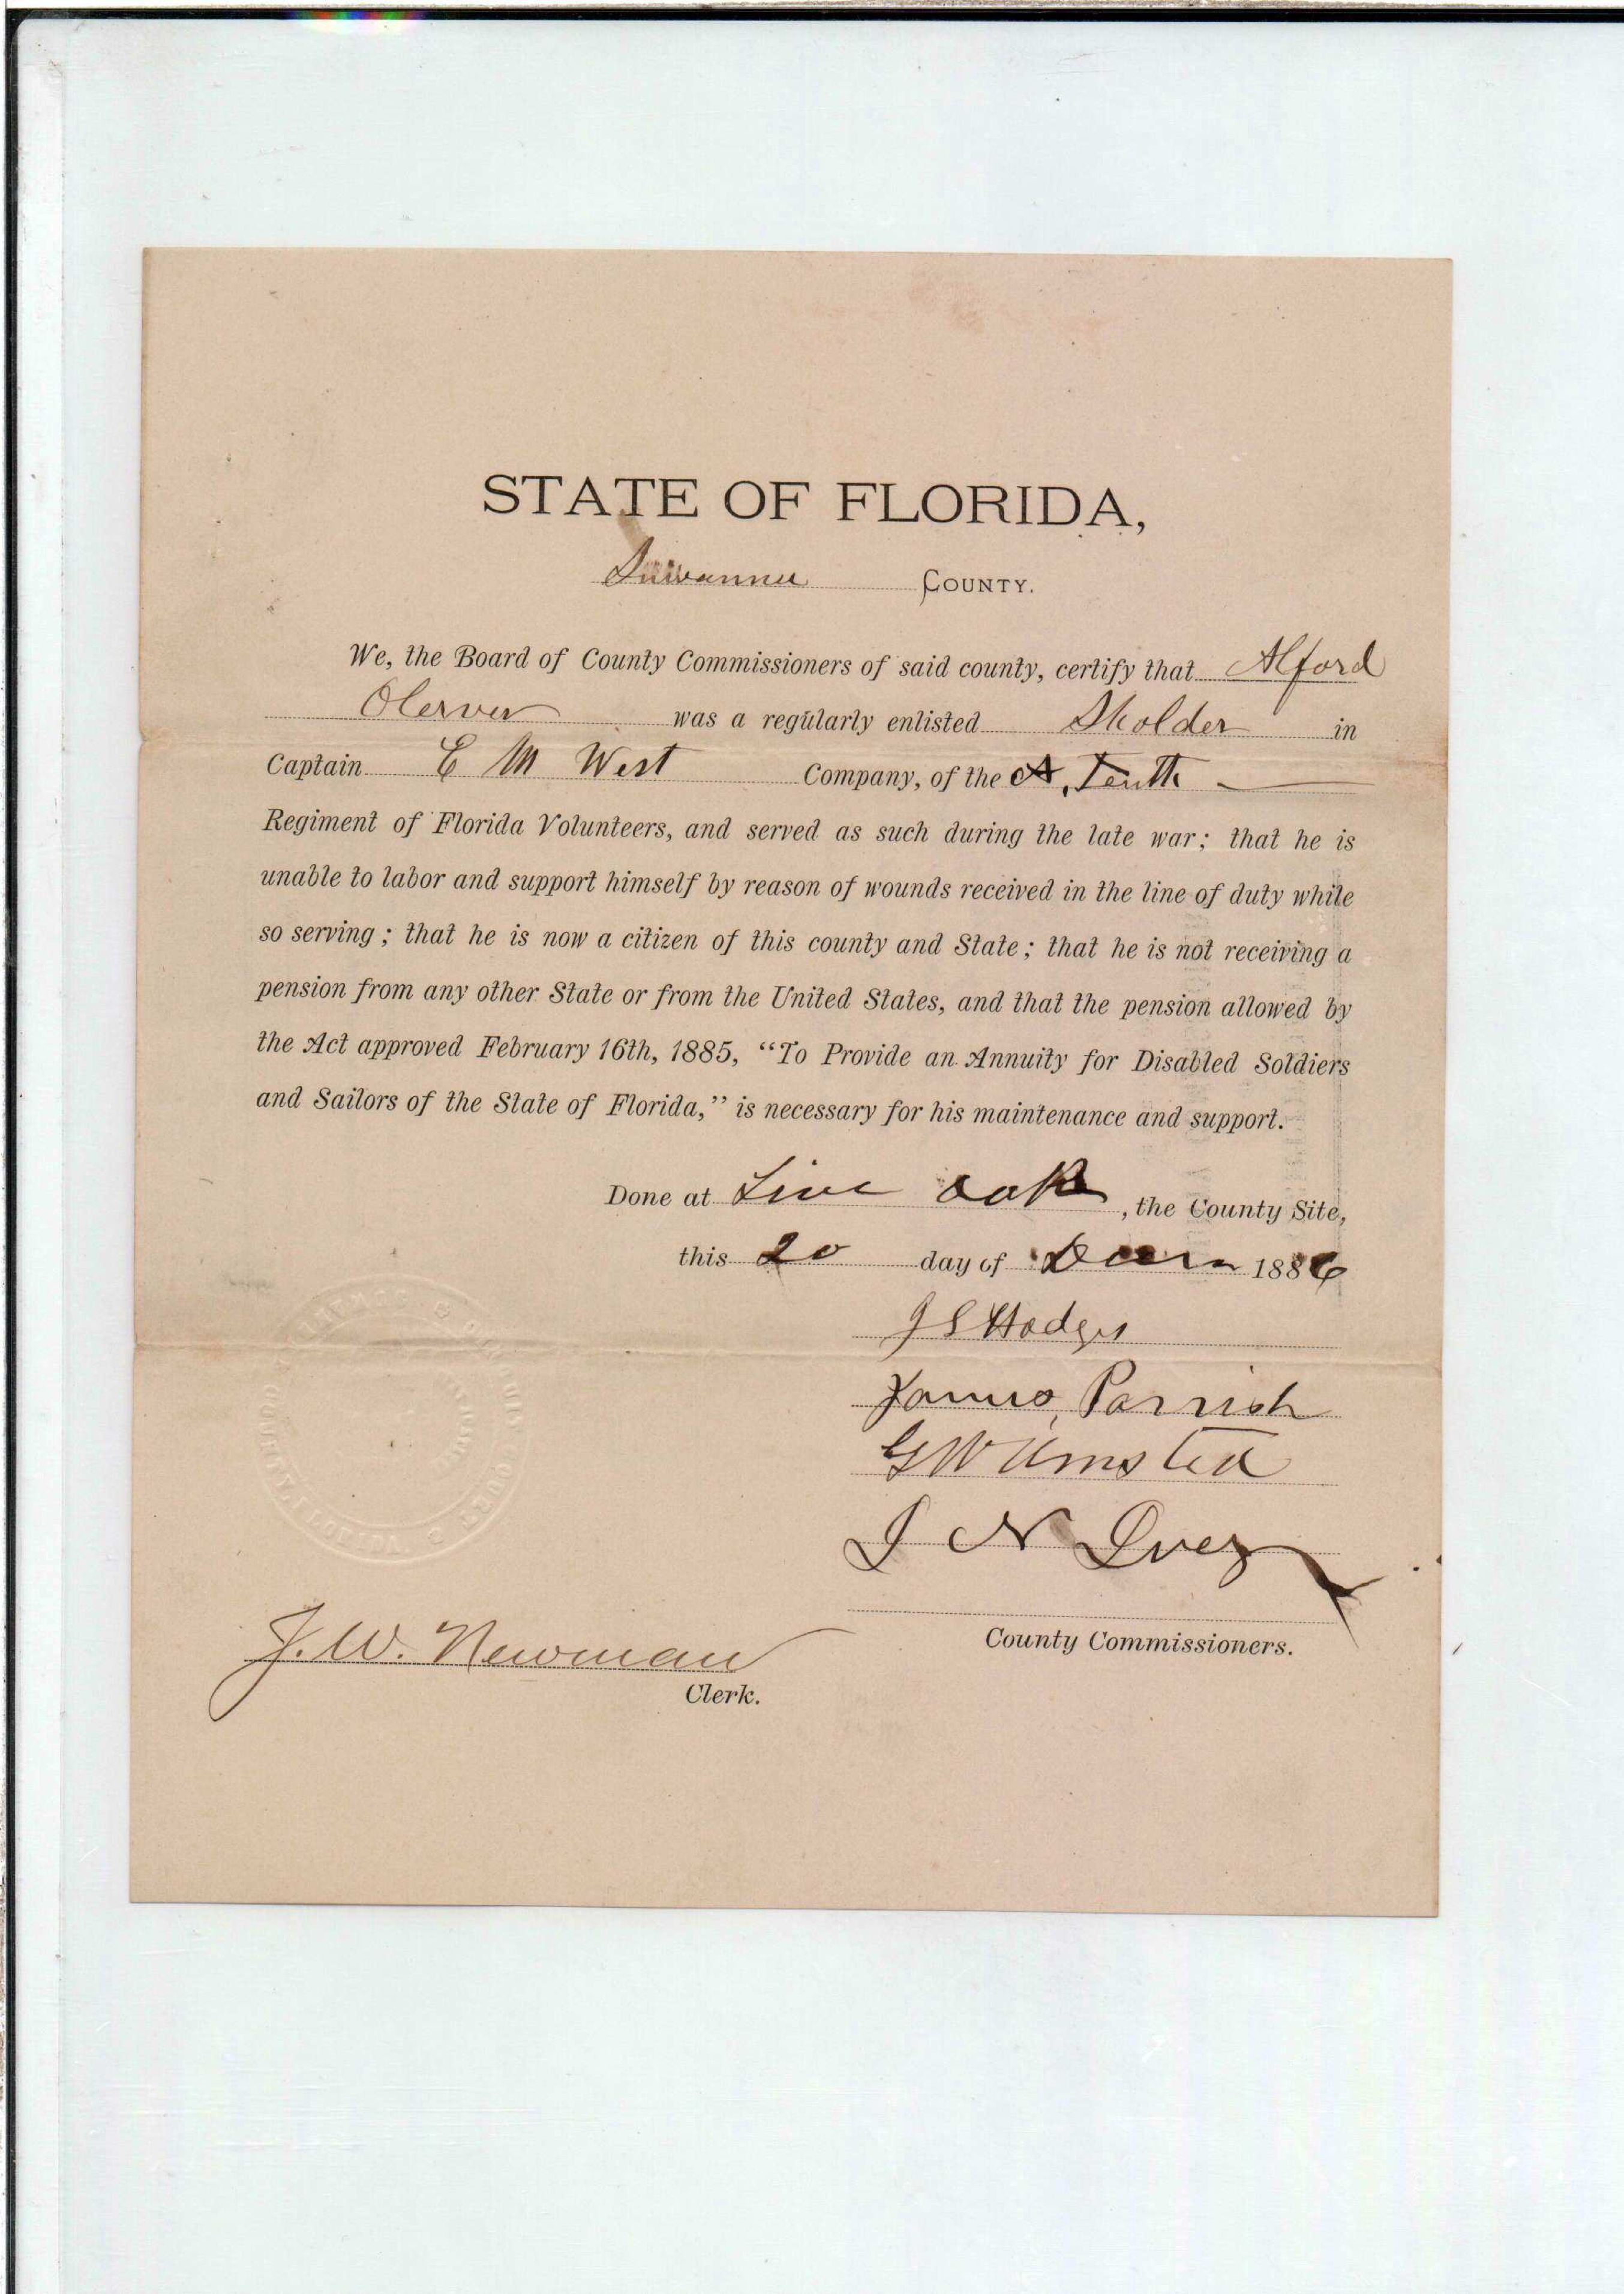 STATE OF FLORIDA,
Suwannee COUNTY.
We, the Board of County Commissioners of said county, certify that Alford
Olerver was a regularly enlisted Sholder in
Captain E M West Company, of the A, Tenth
Regiment of Florida Volunteers, and served as such during the late war; that he is
unable to labor and support himself by reason of wounds received in the line of duty while
so serving; that he is now a citizen of this county and State; that he is not receiving a
pension from any other State or from the United States, and that the pension allowed by
the Act approved February 16th, 1885, “To Provide an Annuity for Disabled Soldiers
and Sailors of the State of Florida,” is necessary for his maintenance and support.
Done at Live Oak, the County Site,
this 20 day of 1886
J S Hodges
James Parrish
G W Umsted
J N Ivey
County Commissioners.
J. W. Newman
Clerk.